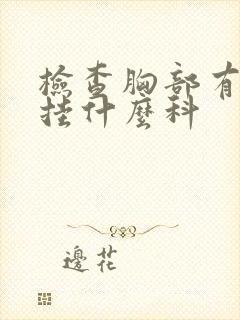 檢查胸部有
挂什麼科
邊花